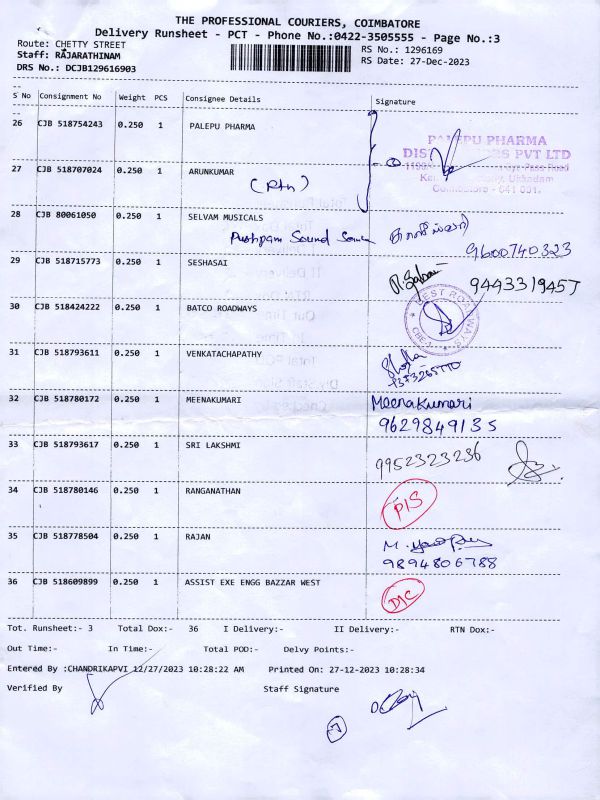 THE PROFESSIONAL COURIERS, COIMBATORE
Delivery Runsheet - PCT - Phone No.:0422-3505555 - Page No.:3
Route: CHETTY STREET RS No.: 1296169
Staff: RAJARATHINAM RS Date: 27-Dec-2023
DRS No.: DCJB129616903
S No Consignment No Weight PCS Consignee Details Signature
26 CJB 518754243 0.250 1 PALEPU PHARMA
PALEPU PHARMA
PVT LTD
27 CJB 518707024 0.250 1 ARUNKUMAR
(Rtn)
Coimbatore - 641 001.
28 CJB 80061050 0.250 1 SELVAM MUSICALS
Pushpam Sound 9600740323
29 CJB 518715773 0.250 1 SESHASAI
9443319457
30 CJB 518424222 0.250 1 BATCO ROADWAYS
31 CJB 518793611 0.250 1 VENKATACHAPATHY
32 CJB 518780172 0.250 1 MEENAKUMARI Meenakumari
9629849135
33 CJB 518793617 0.250 1 SRI LAKSHMI
9952323236
34 CJB 518780146 0.250 1 RANGANATHAN
PIS
35 CJB 518778504 0.250 1 RAJAN
9894806788
36 CJB 518609899 0.250 1 ASSIST EXE ENGG BAZZAR WEST
D/C
Tot. Runsheet:- 3 Total Dox:- 36 I Delivery:- II Delivery:- RTN Dox:-
Out Time:- In Time:- Total POD:- Delvy Points:-
Entered By :CHANDRIKAPVI 12/27/2023 10:28:22 AM Printed On: 27-12-2023 10:28:34
Verified By Staff Signature